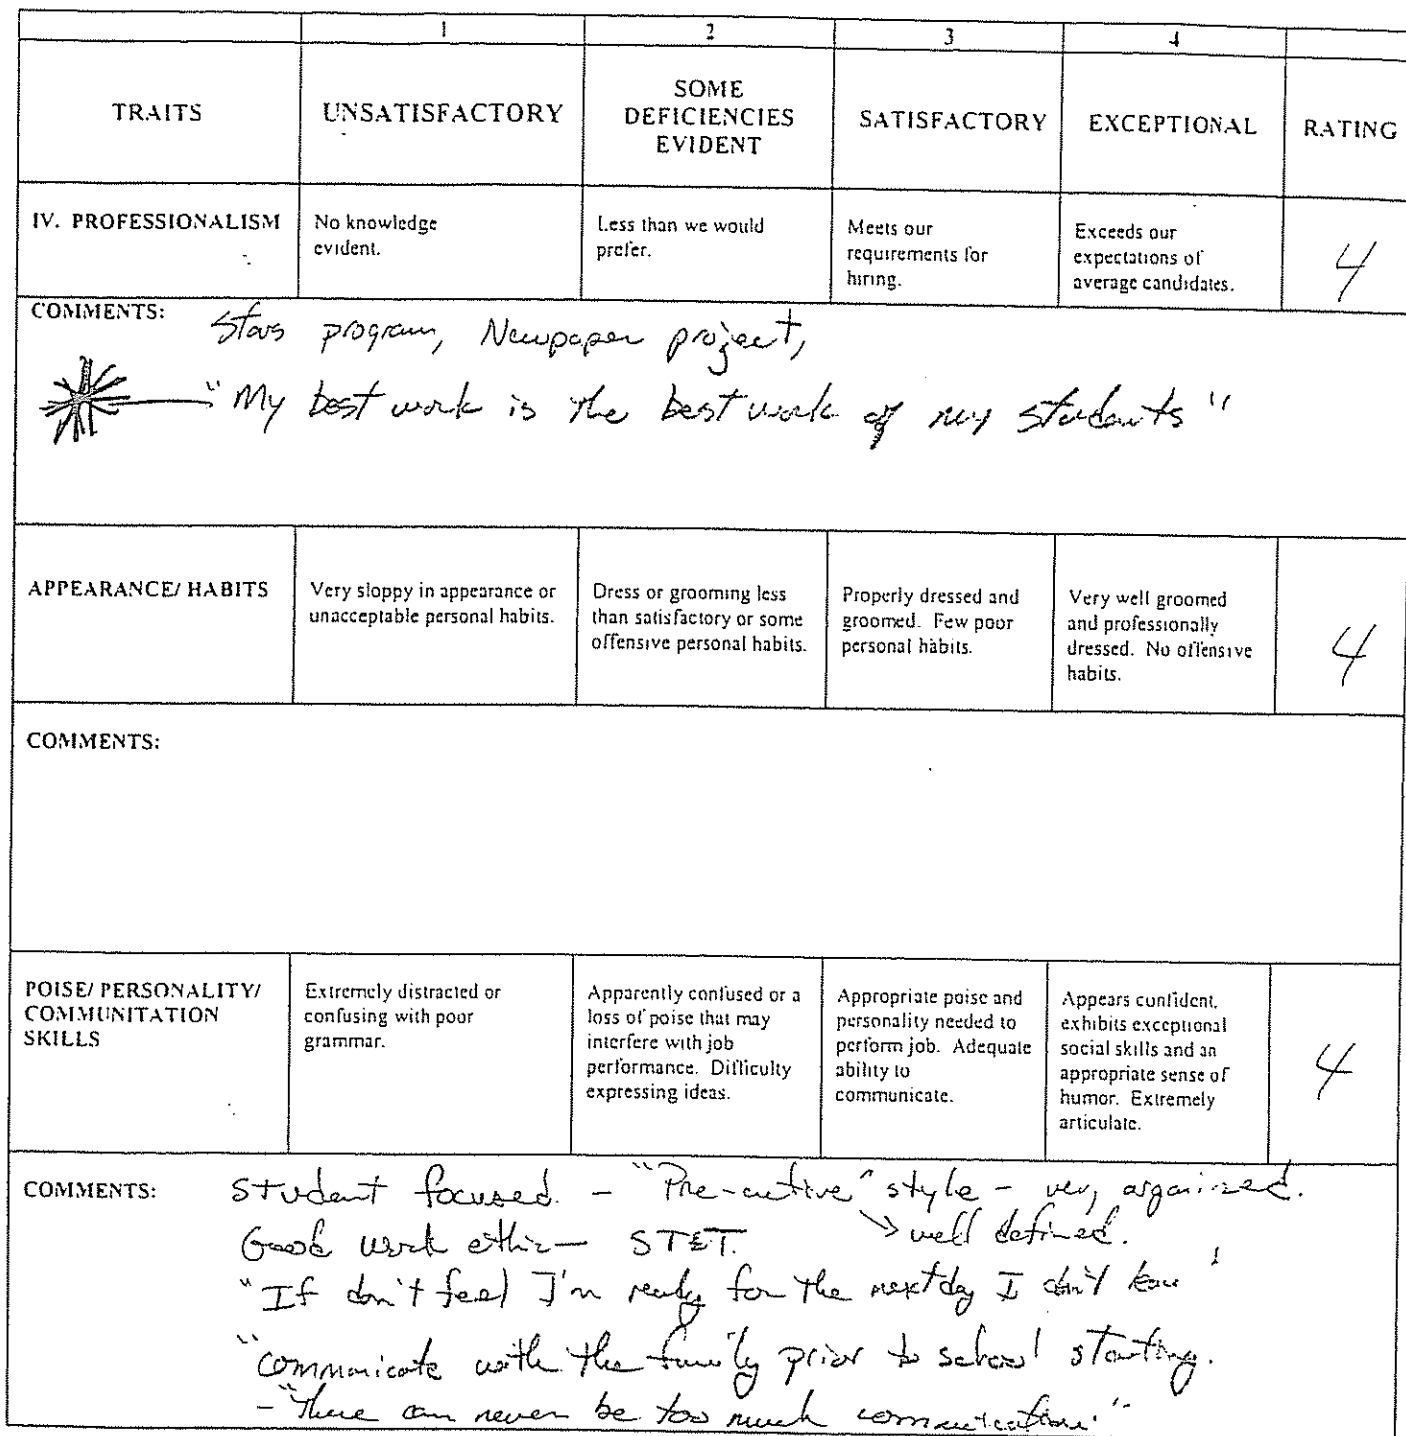 1 2 3 4
TRAITS UNSATISFACTORY SOME DEFICIENCIES EVIDENT SATISFACTORY EXCEPTIONAL RATING
IV. PROFESSIONALISM
No knowledge
evident.
Less than we would
prefer.
Meets our
requirements for
hiring.
Exceeds our
expectations of
average candidates.
4
COMMENTS: Stars program, Newpaper project,
"My best work is the best work of my students"
APPEARANCE/ HABITS
Very sloppy in appearance or
unacceptable personal habits.
Dress or grooming less
than satisfactory or some
offensive personal habits.
Properly dressed and
groomed. Few poor
personal habits.
Very well groomed
and professionally
dressed. No offensive
habits.
4
COMMENTS:
POISE/ PERSONALITY/
COMMUNITATION
SKILLS
Extremely distracted or
confusing with poor
grammar.
Apparently confused or a
loss of poise that may
interfere with job
performance. Difficulty
expressing ideas.
Appropriate poise and
personality needed to
perform job. Adequate
ability to
communicate.
Appears confident,
exhibits exceptional
social skills and an
appropriate sense of
humor. Extremely
articulate.
4
COMMENTS: Student focused. - style - very organized.
Good work ethic - STET. well defined.
"If don't feel I'm ready for the next day I don't
"communicate with the family prior to school starting.
- "There can never be too much communication."